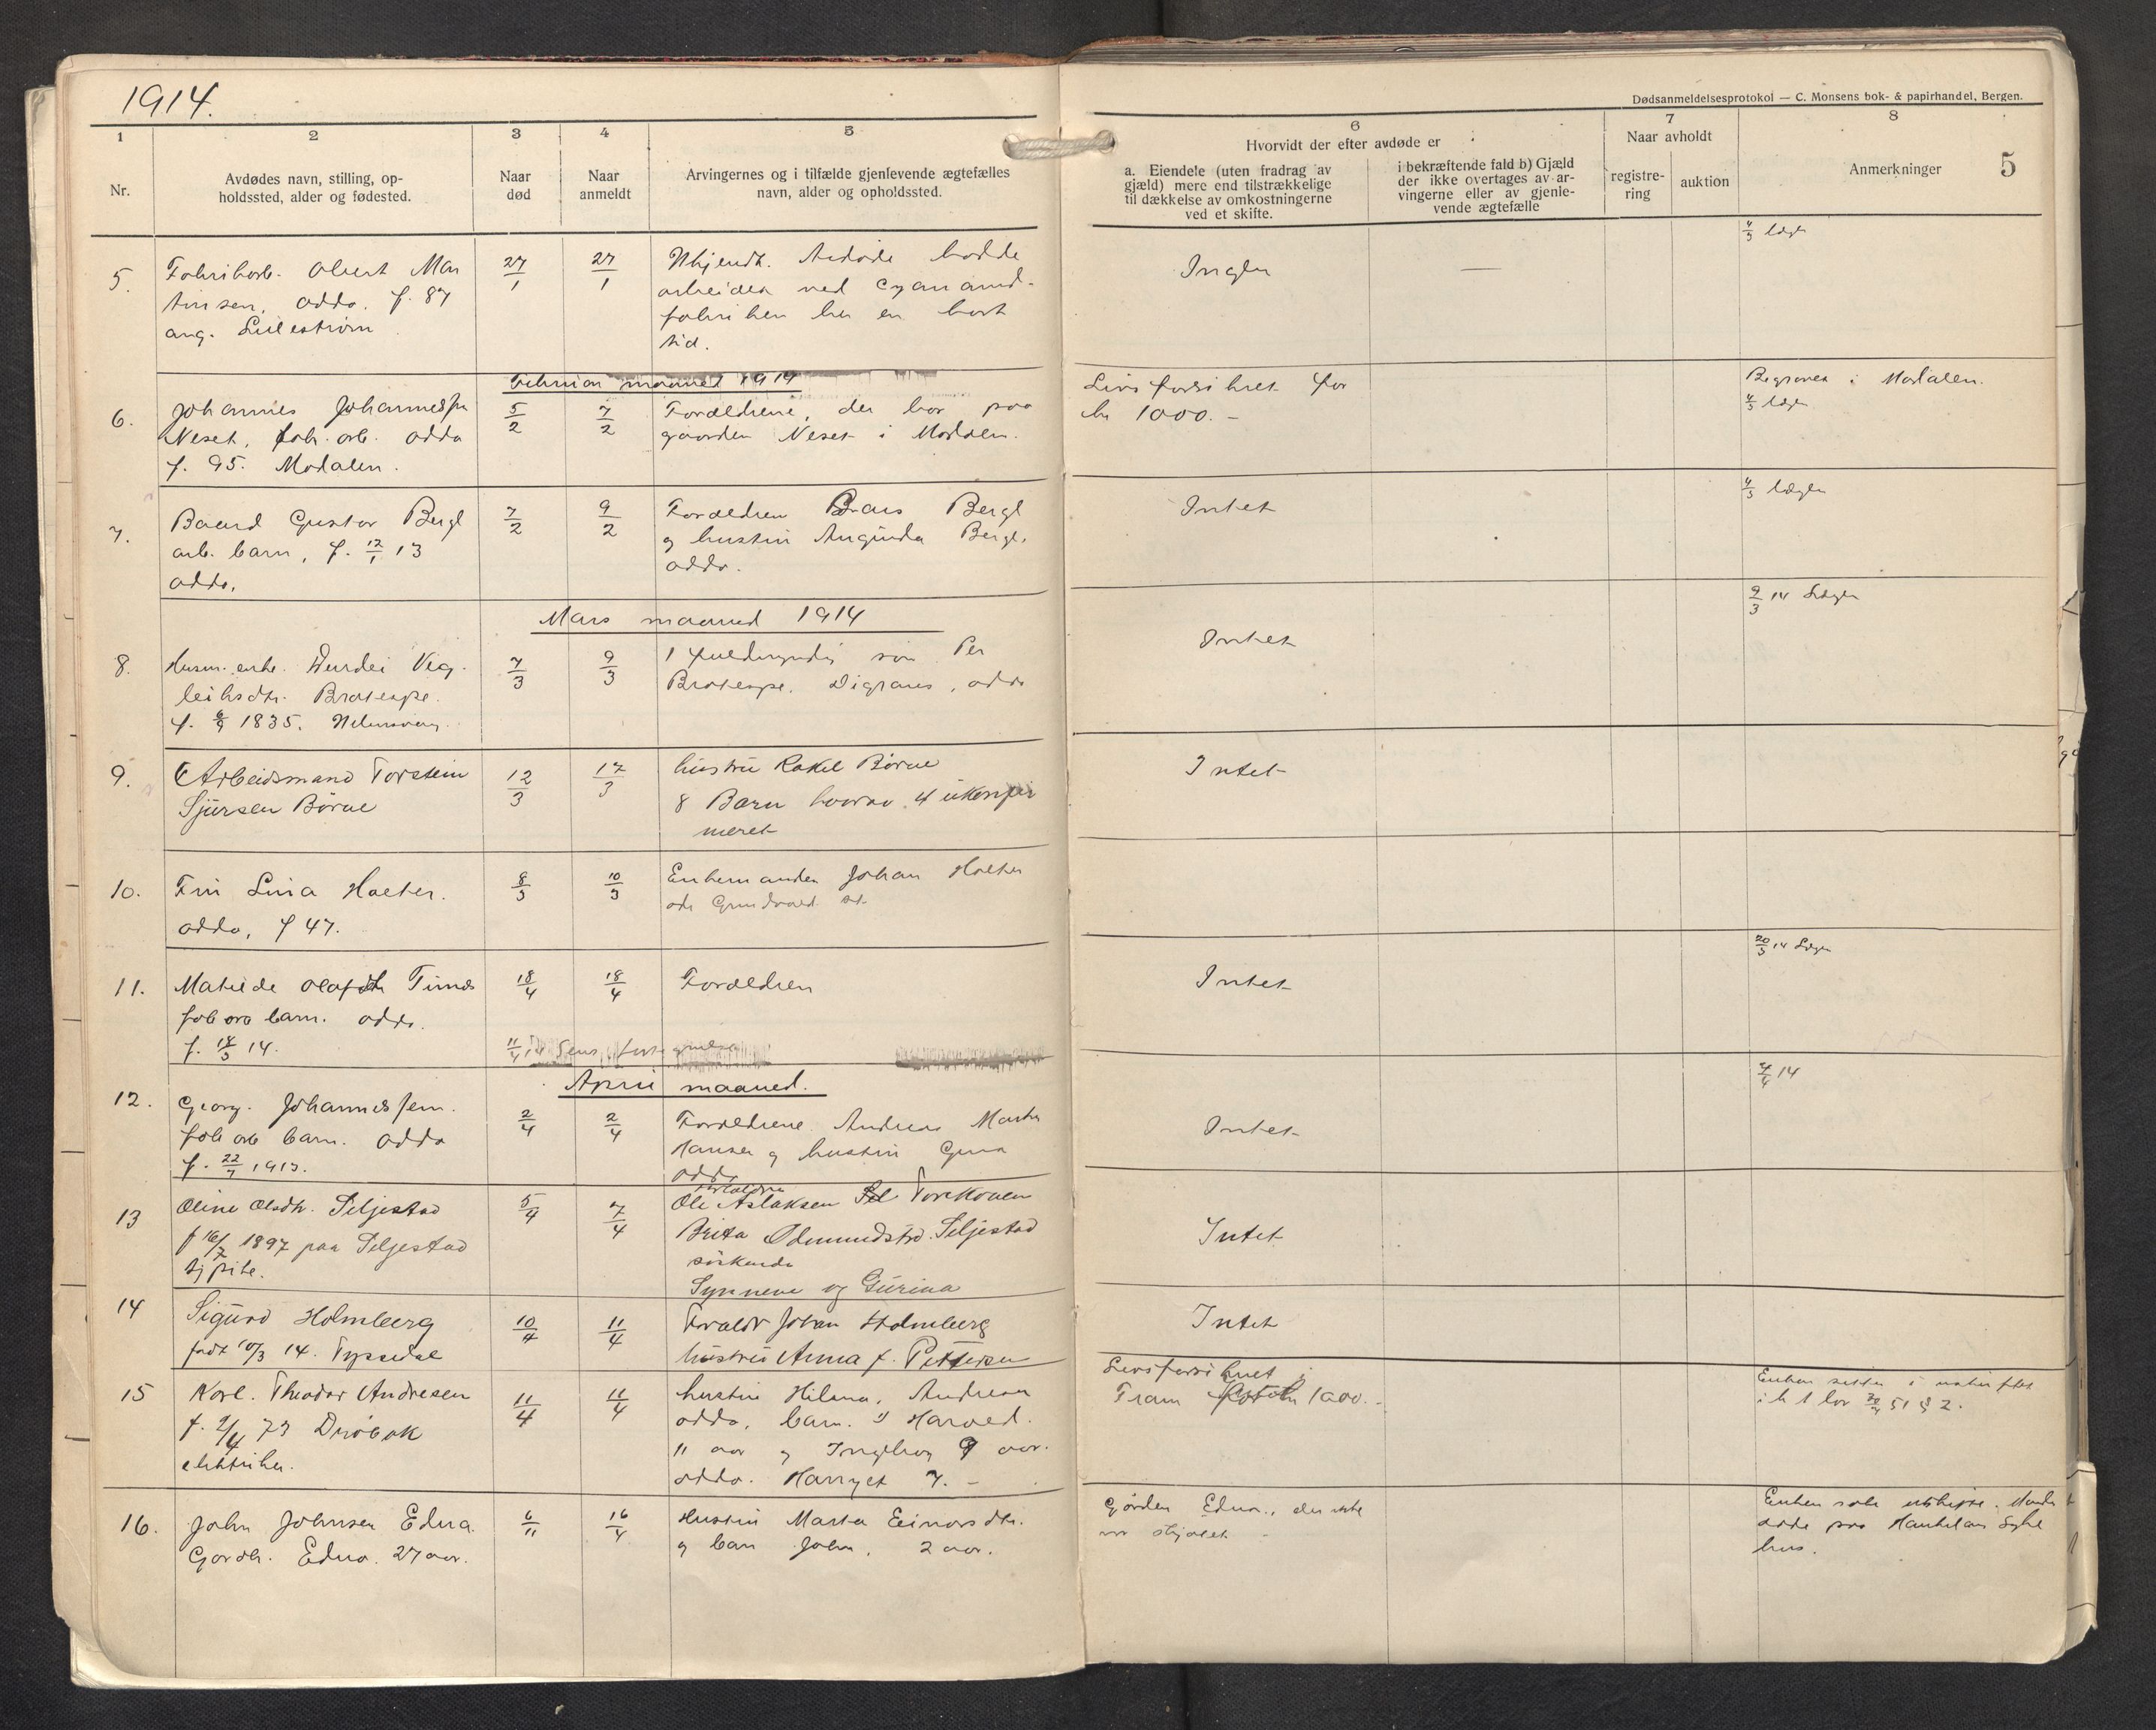 1914.
Dødsanmeldelsesprotokol — C. Monsens bok- & papirhandel, Bergen.
1
2
3
4
5
6
7
8
Nr.
Avdødes navn, stilling, op-
holdssted, alder og fødested.
Naar
død
Naar
anmeldt
Arvingernes og i tilfælde gjenlevende ægtefælles
navn, alder og opholdssted.
Hvorvidt der efter avdøde er
a. Eiendele (uten fradrag av
gjæld) mere end tilstrækkelige
til dækkelse av omkostningerne
ved et skifte.
i bekræftende fald b) Gjæld
der ikke overtages av ar-
vingerne eller av gjenle-
vende ægtefælle
Naar avholdt
registre-
ring
auktion
Anmerkninger
5
5.
Fabrikarb. Olvert Mar
tinsen, Odda. f. 87
ang. Lillestrøm
27/1
27/1
Ukjendt. Avdøde hadde
arbeidet ved Cyanamid-
fabriken her en kort
tid.
Ingen
—
4/3 læge
Februar maaned 1914
6.
Johannes Johannessen
Neset, fabr. arb. Odda
f. 95. Modalen.
5/2
7/2
Forældrene, der bor paa
gaarden Neset i Modalen.
Livsforsikret for
kr 1000.-
Begravet i Modalen.
4/3 læge
7.
Baard Gustav Bergl
arb. barn, f. 12/1 13
Odda.
7/2
9/2
Forældren Lars Bergl
og hustru Bergl.
Odda.
Intet
4/3 lægen
Mars maaned 1914
8.
Husm. enke. Durdei Veg-
leiksdtr. Bratespe.
f. 1835.
7/3
9/3
1 fuldmyndig søn Per
Bratespe. Digranes, Odda
Intet
9/3 14 Lægen
9.
Arbeidsmand Torstein
Sjursen Børve
12/3
17/3
hustru Rakel Børve
8 Barn hvorav 4 ukonfir
meret
Intet
10.
Fru Lina Holter.
Odda, f 47.
8/3
10/3
Enkemanden Johan Holter
11.
Matilde Olafdtr
fab arb barn. Odda.
f. 18/3 14.
18/4
18/4
Forældren
Intet
20/3 14 Lægen
11/4 14
April maaned.
12.
Georg. Johannessen.
fab arb barn. Odda
f. 22/7 1913.
2/4
2/4
Forældrene. Andreas Martin
Hansen og hustru
Odda
Intet
2/4 14
13
Oline Olsdtr. Seljestad
f 16/7 1897 paa Seljestad
tj pike.
5/4
7/4
Forældre
Ole Aslaksen
Brita Odmundsdtr. Seljestad
søskende
Synneve og Gurina
Intet
14
Sigurd Holmberg
født 10/3 14. Tyssedal
10/4
11/4
Forældr Johan Holmberg
hustru Anna f. Pettersen
Intet
15
Karl. Theodor Andresen
f. 2/4 73 Drøbak
elektriker.
11/4
11/4
hustru Hilma, Andresen
Odda, barn. Harald.
11 aar og Ingeborg 9 aar.
Odda. Harryet 7. -
Livsforsikret i
Fram 1000.-
Enken sitter i uskiftet
16.
John Johnsen Edna.
Gardbr. Edna. 27 aar.
6/11
16/4
Hustru Marta Einarsdtr.
og barn John, 2 aar.
Gaarden Edna., der ikke
er skjøtet -